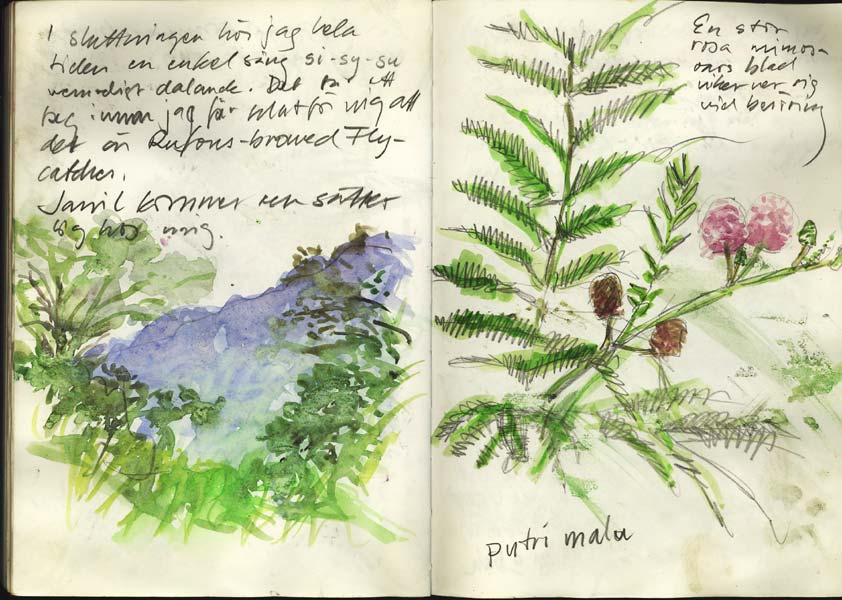 I sluttningen hör jag hela
tiden en enkel sång si-sy-su
vemodigt dalande. Det tar ett
tag innan jag får klart för mig att
det är Rufous-browed Fly-
catcher.
Jamil kommer och sätter
sig hos mig.
En stor
rosa mimosa
vars blad
viker ner sig
vid beröring
putri malu